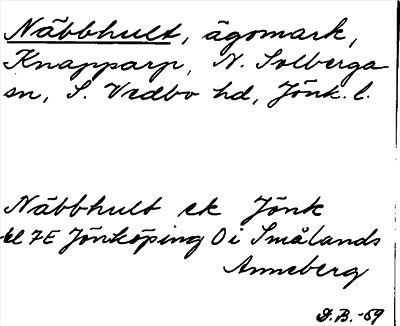 Näbbhult, ägomark,
Knapparp, N. Solberga
sn, S. Vedbo hd, Jönk. l.
Näbbhult ek Jönk
bl 7E Jönköping O i Smålands
Anneberg
D.B. -69